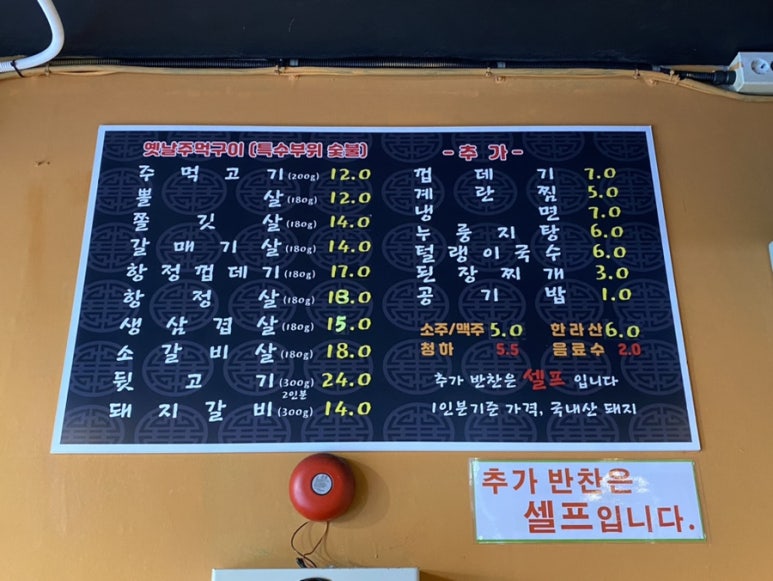 옛날주먹구이 (특수부위 숯불)
주먹고기 (200g) 12.0
뽈살 (180g) 12.0
쫄깃살 (180g) 14.0
갈매기살 (180g) 14.0
항정껍데기 (180g) 17.0
항정살 (180g) 18.0
생삼겹살 (180g) 15.0
소갈비살 (180g) 18.0
뒷고기 (300g) 24.0
2인분
돼지갈비 (300g) 14.0
- 추 가 -
껍데기 7.0
계란찜 5.0
냉면 7.0
누룽지탕 6.0
털랭이국수 6.0
된장찌개 3.0
공기밥 1.0
소주/맥주 5.0 한라산 6.0
청하 5.5 음료수 2.0
추가 반찬은 셀프 입니다
1인분기준 가격, 국내산 돼지
추가 반찬은
셀프입니다.